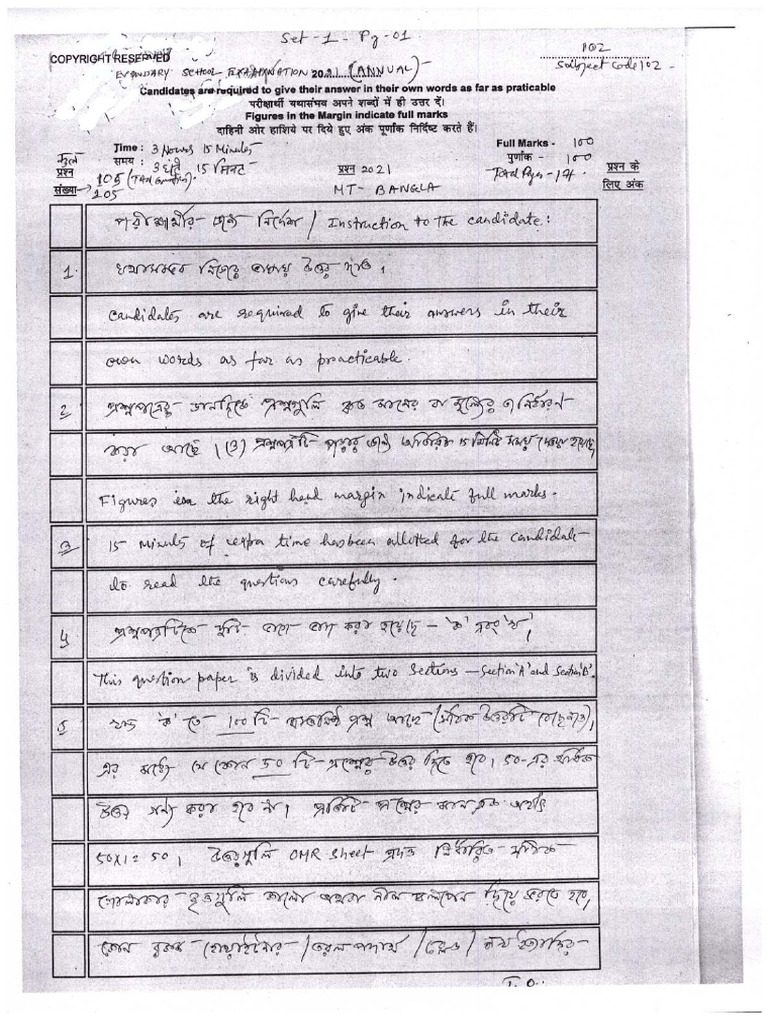 Set-1- Pg-01
COPYRIGHT RESERVED
102
Subject Code 102
SCHOOL EXAMINATION 2021 (ANNUAL)
Candidates are required to give their answer in their own words as far as praticable
परीक्षार्थी यथासंभव अपने शब्दों में ही उत्तर दें।
Figures in the Margin indicate full marks
दाहिनी ओर हाशिये पर दिये हुए अंक पूर्णांक निर्दिष्ट करते हैं।
Time : 3 Hours 15 Minutes
Full Marks - 100
समय : 3 घंटे 15 मिनट
पुर्णांक - 100
कुल प्रश्न संख्या → 105
205
प्रश्न 2021
Total Pages -
प्रश्न के लिए अंक
MT- BANGLA
পরীক্ষার্থীর জন্য নির্দেশ / Instruction to the candidate:
1. যথাসম্ভব নিজের ভাষায় উত্তর দাও।
Candidates are required to give their answers in their
own words as far as practicable.
2. প্রশ্নপত্রের ডানদিকে প্রশ্নগুলি কত মানের বা মূল্যের তা নির্ধারণ
করা আছে। (৩) প্রশ্নপত্রটি পড়ার জন্য অতিরিক্ত 15 মিনিট সময় দেওয়া হয়েছে
Figures in the right hand margin indicate full marks.
3 15 Minutes of extra time has been allotted for the candidate
to read the questions carefully.
4 প্রশ্নপত্রটিকে দুটি ভাগে ভাগ করা হয়েছে - 'ক' এবং 'খ',
This question paper is divided into two Sections - Section 'A' and Section 'B'.
5 খণ্ড 'ক' তে 100টি বস্তুনিষ্ঠ প্রশ্ন আছে (সঠিক উত্তরটি বেছে নাও),
এর মধ্যে যে কোন 50 টি প্রশ্নের উত্তর দিতে হবে। 50-এর অধিক
উত্তর গণ্য করা হবে না। প্রতিটি প্রশ্নের মান এক অর্থাৎ
50X1=50, উত্তরগুলি OMR Sheet প্রদত্ত নির্ধারিত সঠিক
গোলাকার বৃত্তগুলি কালো অথবা নীল বলপেন দিয়ে ভরতে হবে,
কোন রকম হোয়াইটনার / তরল পদার্থ / ব্লেড / নখ ইত্যাদির